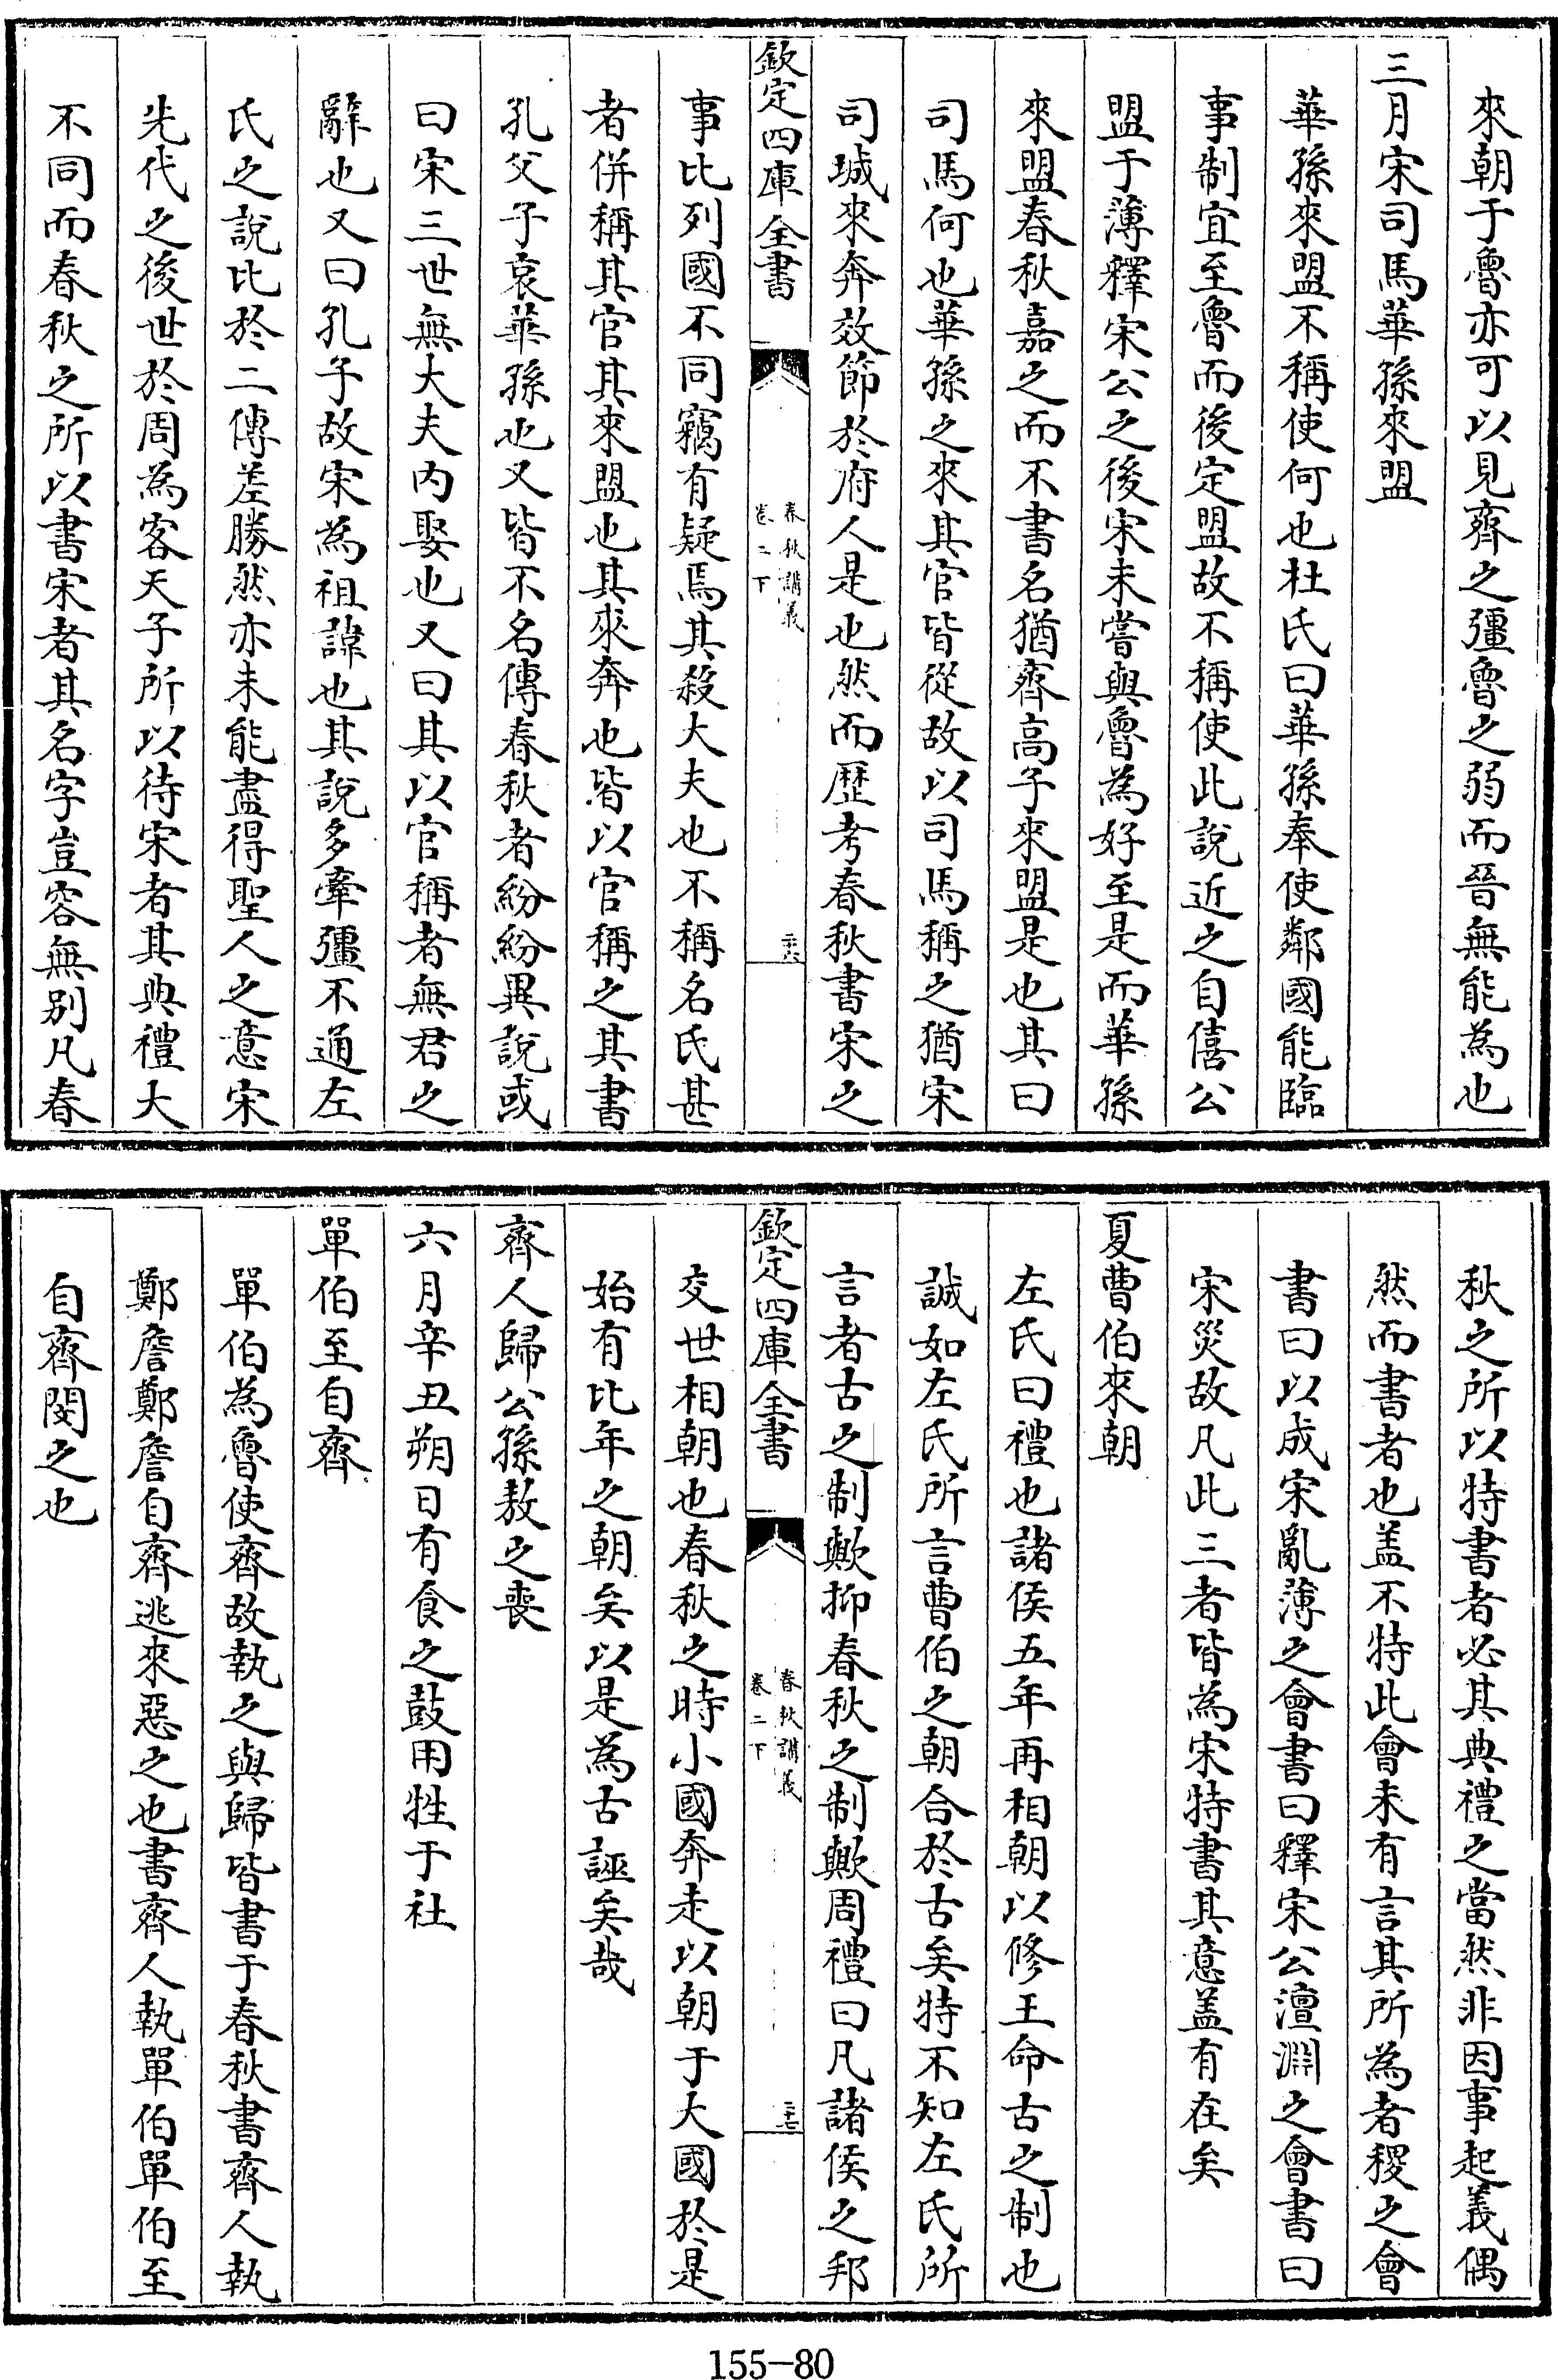 來朝于魯亦可以見齊之彊魯之弱而晉無能為也
三月宋司馬華孫來盟
華孫來盟不稱使何也杜氏曰華孫奉使鄰國能臨
事制宜至魯而後定盟故不稱使此說近之自僖公
盟于薄釋宋公之後宋未嘗與魯為好至是而華孫
來盟春秋嘉之而不書名猶齊高子來盟是也其曰
司馬何也華孫之來其官皆從故以司馬稱之猶宋
司城來奔效節於府人是也然而歷考春秋書宋之
欽定四庫全書
春秋講義
卷二下
二十六
事比列國不同竊有疑焉其殺大夫也不稱名氏甚
者併稱其官其來盟也其來奔也皆以官稱之其書
孔父子哀華孫也又皆不名傳春秋者紛紛異說或
曰宋三世無大夫内娶也又曰其以官稱者無君之
辭也又曰孔子故宋為祖諱也其說多牽彊不通左
氏之說比於二傳差勝然亦未能盡得聖人之意宋
先代之後世於周為客天子所以待宋者其典禮大
不同而春秋之所以書宋者其名字豈容無别凡春
秋之所以特書者必其典禮之當然非因事起義偶
然而書者也盖不特此會未有言其所為者稷之會
書曰以成宋亂薄之會書曰釋宋公澶淵之會書曰
宋災故凡此三者皆為宋特書其意盖有在矣
夏曹伯來朝
左氏曰禮也諸侯五年再相朝以修王命古之制也
誠如左氏所言曹伯之朝合於古矣特不知左氏所
言者古之制歟抑春秋之制歟周禮曰凡諸侯之邦
欽定四庫全書
春秋講義
卷二下
二十七
交世相朝也春秋之時小國奔走以朝于大國於是
始有比年之朝矣以是為古誣矣哉
齊人歸公孫敖之喪
六月辛丑朔日有食之鼓用牲于社
單伯至自齊
單伯為魯使齊故執之與歸皆書于春秋書齊人執
鄭詹鄭詹自齊逃來惡之也書齊人執單伯單伯至
自齊閔之也
155-80